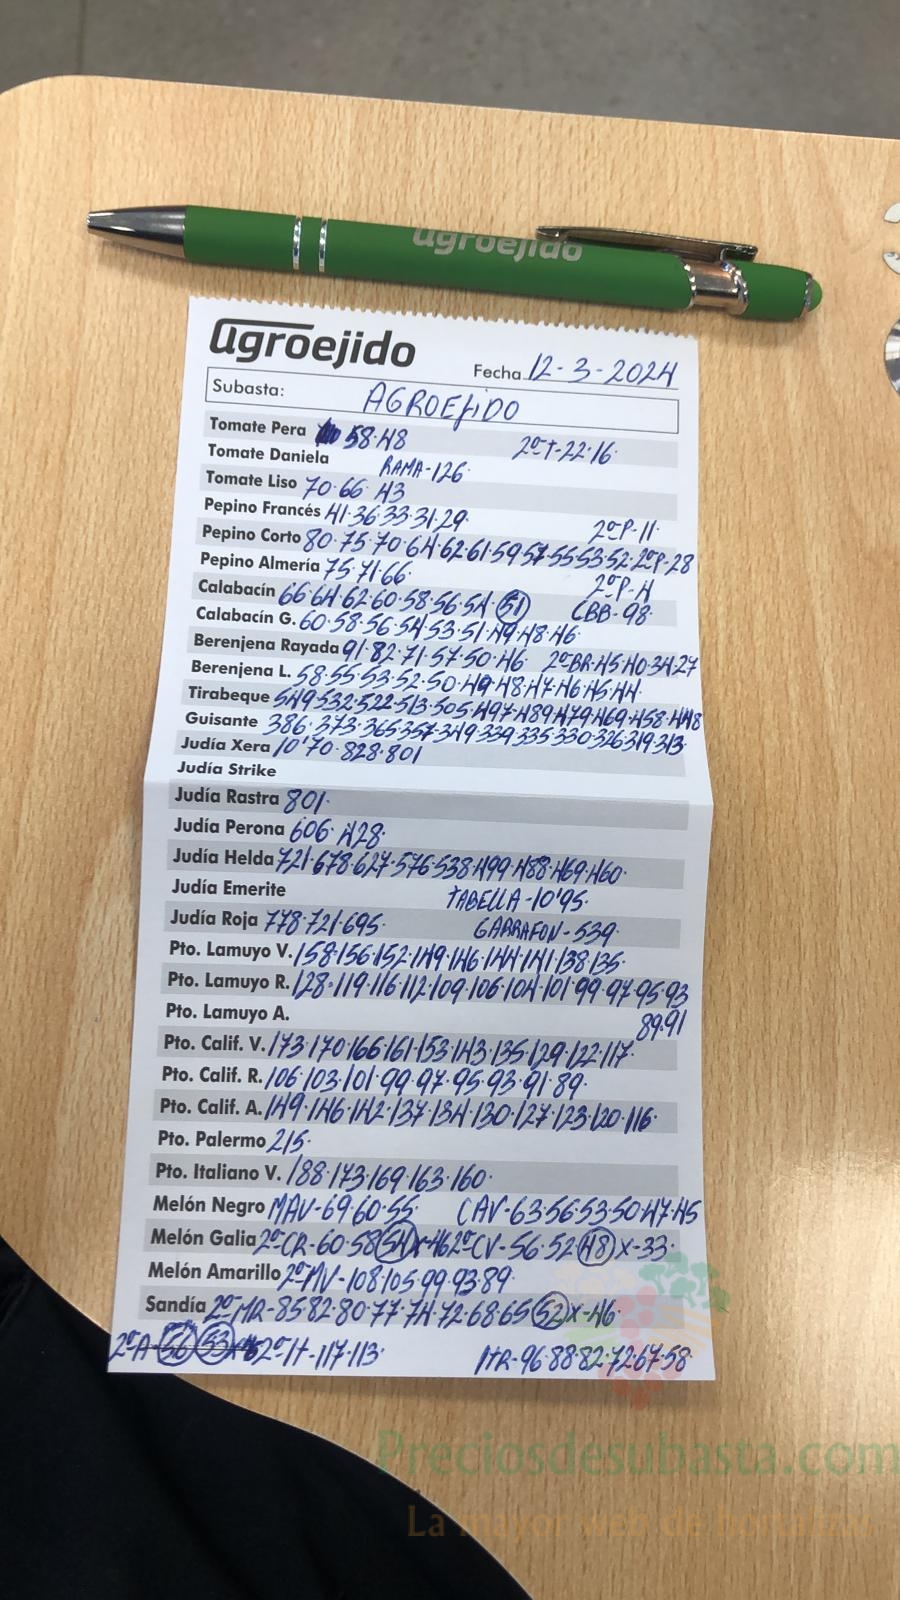 agroejido
agroejido
Fecha 12-3-2024
Subasta: AGROEJIDO
Tomate Pera 58·48 2ºT-22·16·
Tomate Daniela RAMA-126·
Tomate Liso 70·66·43
Pepino Francés 41·36·33·31·29· 2ºP-11·
Pepino Corto 80·75·70·64·62·61·59·57·55·53·52·2ºP-28
Pepino Almería 75·71·66· 2ºP-4
Calabacín 66·64·62·60·58·56·54·51 CBB-98·
Calabacín G. 60·58·56·54·53·51·49·48·46·
Berenjena Rayada 91·82·71·57·50·46· 2ºBR·45·40·34·27
Berenjena L. 58·55·53·52·50·49·48·47·46·45·44·
Tirabeque 549·532·522·513·505·497·489·479·469·458·448
Guisante 386·373·365·357·349·339·335·330·326·319·313·
Judía Xera 10'70·828·801
Judía Strike
Judía Rastra 801·
Judía Perona 606·428·
Judía Helda 721·678·627·576·538·499·488·469·460·
Judía Emerite TABELLA-10'95·
Judía Roja 778·721·695· GARRAFON-539·
Pto. Lamuyo V. 158·156·152·149·146·144·141·138·135·
Pto. Lamuyo R. 128·119·116·112·109·106·104·101·99·97·95·93
Pto. Lamuyo A. 89·91
Pto. Calif. V. 173·170·166·161·153·143·135·129·122·117·
Pto. Calif. R. 106·103·101·99·97·95·93·91·89·
Pto. Calif. A. 149·146·142·137·134·130·127·123·120·116·
Pto. Palermo 215·
Pto. Italiano V. 188·173·169·163·160·
Melón Negro MAV-69·60·55· CAV-63·56·53·50·47·45
Melón Galia 2ºCR-60·58·54 x-46 2ºCV-56·52·48 x-33·
Melón Amarillo 2ºMV-108·105·99·93·89·
Sandía 2ºMR-85·82·80·77·74·72·68·65·52 x-46·
2ºA-56 53 2ºIt-117·113· ItR-96·88·82·72·67·58·
Preciosdesubasta.com
La mayor web de hortalizas